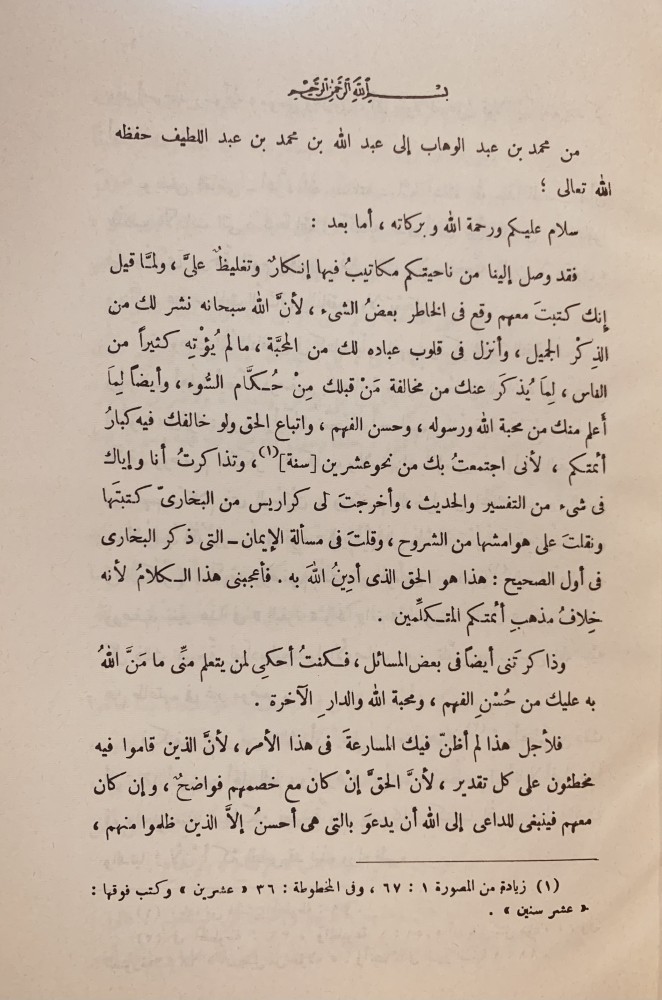 بسم الله الرحمن الرحيم
من محمد بن عبد الوهاب إلى عبد الله بن محمد بن عبد اللطيف حفظه
الله تعالى ؛
سلام عليكم ورحمة الله وبركاته ، أما بعد :
فقد وصل إلينا من ناحيتكم مكاتيبُ فيها إنكارٌ وتغليظٌ علىَّ ، ولمَّا قيل
إنك كتبتَ معهم وقع فى الخاطر بعضُ الشىء ، لأنَّ الله سبحانه نشر لك من
الذِكْر الجميل ، وأنزل فى قلوب عباده لك من المحبَّة ، مالم يُؤْتِهِ كثيراً من
الناس ، لِمَا يُذكرَ عنك من مخالفة مَنْ قبلك مِنْ حُكَّام السُّوء ، وأيضاً لِمَا
أَعلم منك من محبة الله ورسوله ، وحسن الفهم ، واتباع الحق ولو خالفك فيه كبارُ
أئمتكم ، لأنى اجتمعتُ بك من نحوعشرين [سنة](١)، وتذاكرتُ أنا وإياك
فى شىء من التفسير والحديث ، وأخرجتَ لى كراريس من البخارىّ كتبتَها
ونقلتَ على هوامشها من الشروح ، وقلتَ فى مسألة الإيمان – التى ذكر البخارى
فى أول الصحيح : هذا هو الحق الذى أدِينُ اللهَ به . فأعجبنى هذا الكلامُ لأنه
خِلافُ مذهبِ أئمتكم المتكلِّمين .
وذاكرتَنى أيضاً فى بعض المسائل ، فكنتُ أحكى لمن يتعلم منِّى ما مَنَّ اللهُ
به عليك من حُسْنِ الفهم ، ومحبة الله والدارِ الآخرة .
فلأجل هذا لم أظنّ فيك المسارعةَ فى هذا الأمر ، لأنَّ الذين قاموا فيه
مخطئون على كل تقدير ، لأنَّ الحقَّ إنْ كان مع خصمهم فواضحٌ ، وإن كان
معهم فينبغى للداعى إلى الله أن يدعوَ بالتى هى أحسنُ إلاَّ الذين ظلموا منهم ،
(١) زيادة من المصورة ١ : ٦٧ ، وفى المخطوطة : ٣٦ « عشرين » وكتب فوقها :
« عشر سنين » .